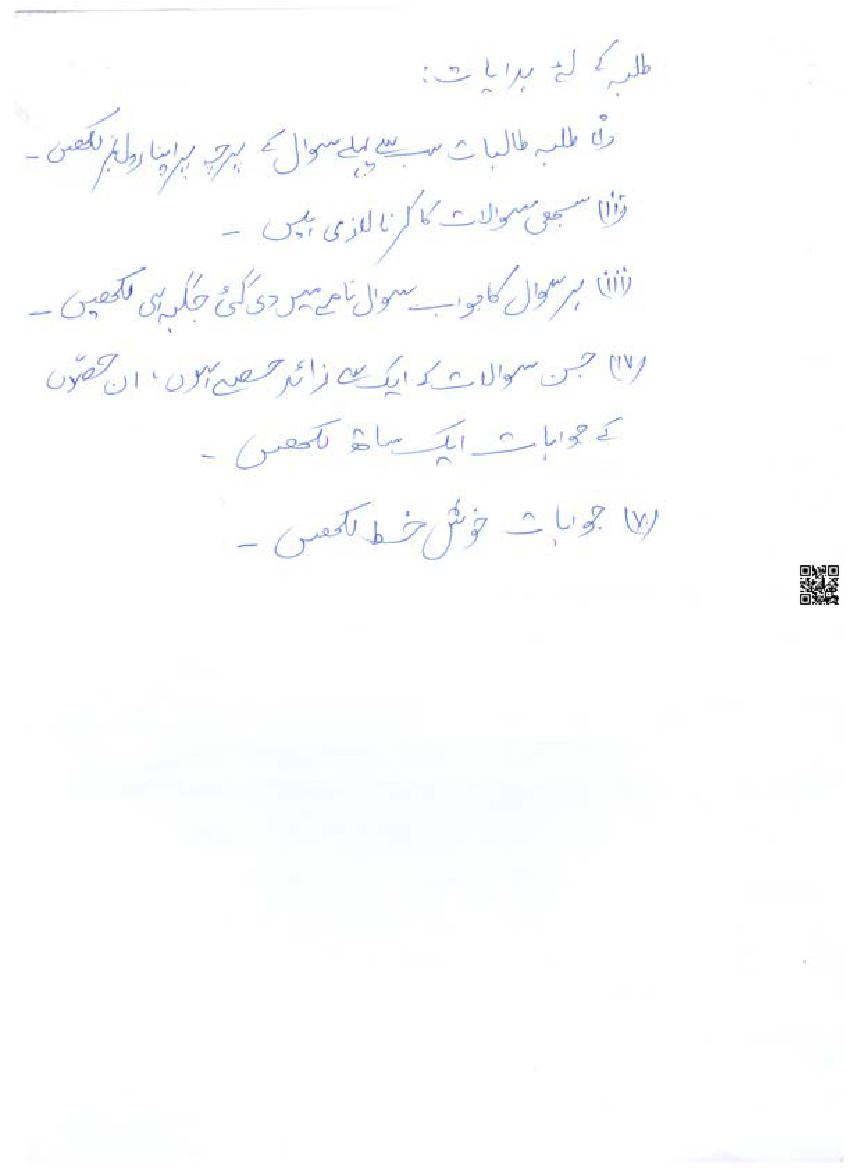 طلبہ کے لئے ہدایات:
(i) طلبہ طالبات سب سے پہلے سوال کے پرچہ پر اپنا رول نمبر لکھیں۔
(ii) سبھی سوالات کا کرنا لازمی ہیں ۔
(iii) ہر سوال کا جواب سوال نامے میں دی گئی جگہ ہی لکھیں ۔
(iv) جن سوالات کے ایک سے زائد حصے ہوں، ان حصّوں
کے جوابات ایک ساتھ لکھیں ۔
(v) جوابات خوش خط لکھیں ۔